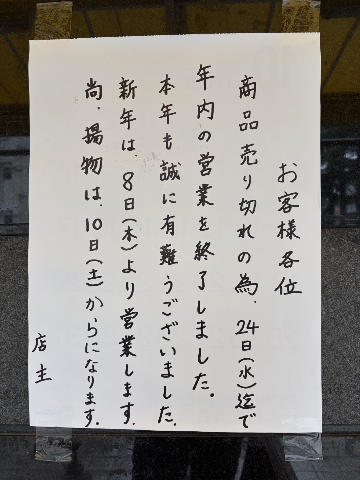 お客様各位
商品売り切れの為、24日(水)迄で
年内の営業を終了しました。
本年も誠に有難うございました。
新年は、8日(木)より営業します。
尚、揚物は、10日(土)からになります。
店主